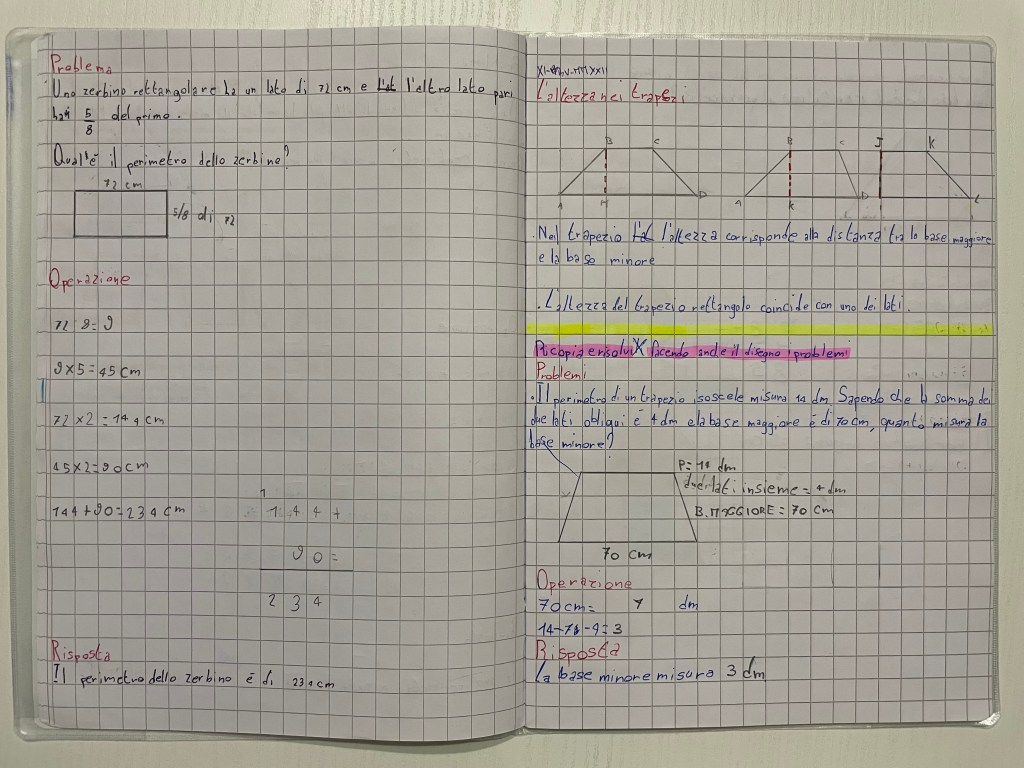 Problema
Uno zerbino rettangolare ha un lato di 72 cm e l'altro lato pari
5/8 del primo.
Qual'è il perimetro dello zerbino?
72 cm
5/8 di 72
Operazione
72:8=9
9×5=45 cm
72×2=144 cm
45×2=90 cm
144+90=234 cm
1
144+
90=
234
Risposta
Il perimetro dello zerbino è di 234 cm
L'altezza nei trapezi
B C B C J K
A H D A K D L
.Nel trapezio l'altezza corrisponde alla distanza tra la base maggiore
e la base minore
.L'altezza del trapezio rettangolo coincide con uno dei lati.
Ricopia e risolvi facendo anche il disegno i problemi
Problemi
.Il perimetro di un trapezio isoscele misura 14 dm. Sapendo che la somma dei
due lati obliqui è 4 dm e la base maggiore è di 70 cm, quanto misura la
base minore?
P=14 dm
due lati insieme = 4 dm
B. MAGGIORE = 70 cm
70 cm
Operazione
70 cm = 7 dm
14-7-4=3
Risposta
La base minore misura 3 dm